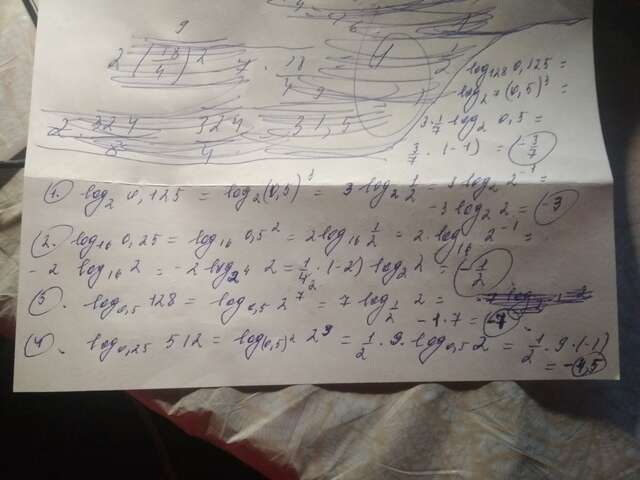 log₁₂₈ 0,125 =
log₂⁷ (0,5)³ =
3·1/7 log₂ 0,5 =
3/7 · (-1) = -3/7
1. log₂ 0,125 = log₂(0,5)³ = 3 log₂ 1/2 = 3 log₂ 2⁻¹ =
-3 log₂ 2 = -3
2. log₁₆ 0,25 = log₁₆ 0,5² = 2log₁₆ 1/2 = 2·log₁₆ 2⁻¹ =
- 2 log₁₆ 2 = -2 log₂⁴ 2 = 1/4 · (-2) log₂ 2 = -1/2
3. log₀,₅ 128 = log₀,₅ 2⁷ = 7 log₁/₂ 2 =
-1·7 = -7
4. log₀,₂₅ 512 = log₍₀,₅₎² 2⁹ = 1/2 · 9 · log₀,₅ 2 = 1/2 · 9 · (-1)
= -4,5